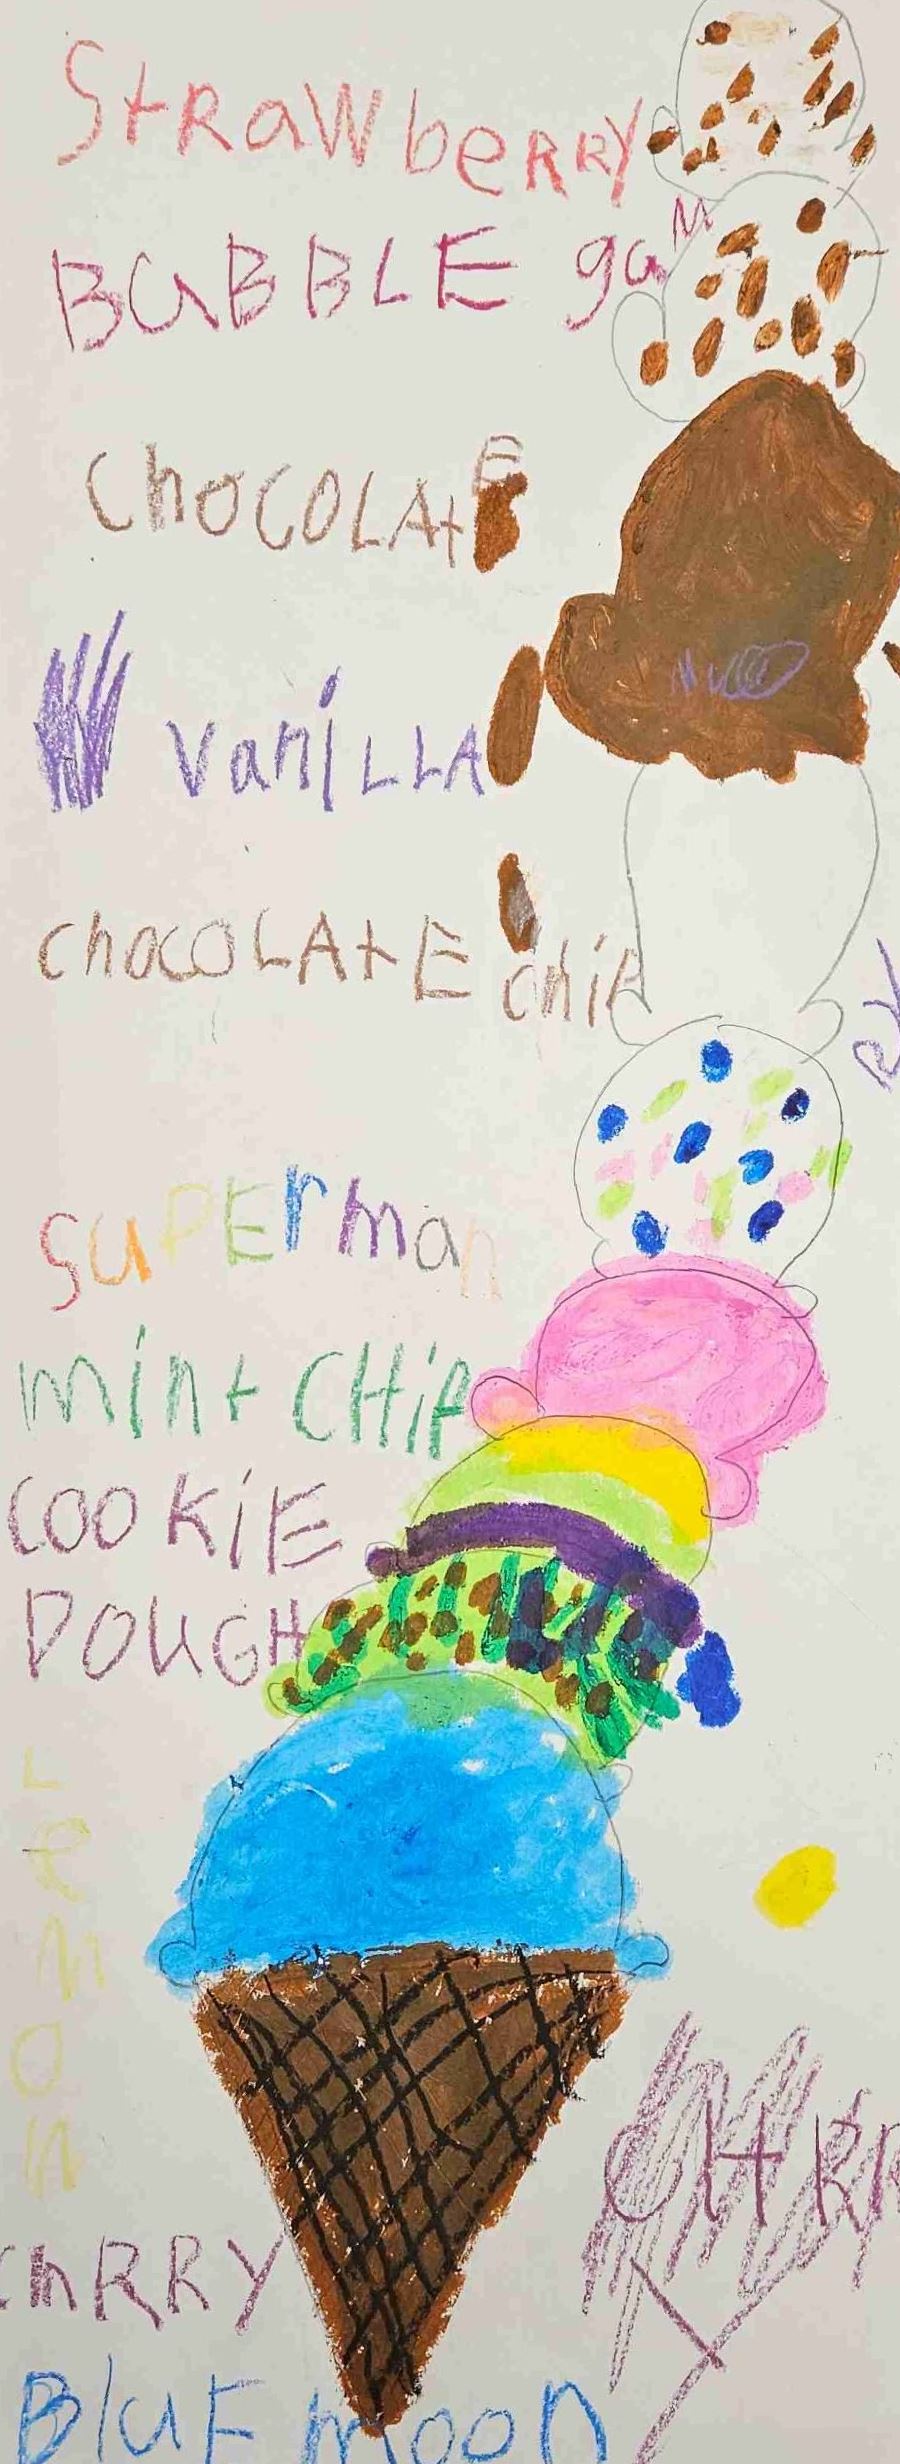 StRawbeRRY
BUBBLE guM
ChOCOLAtE
vaniLLA
chocoLAtE chiP
SuPErman
mint CHiP
COOKiE
DOUGH
LeMon
chRRY
BluE moon